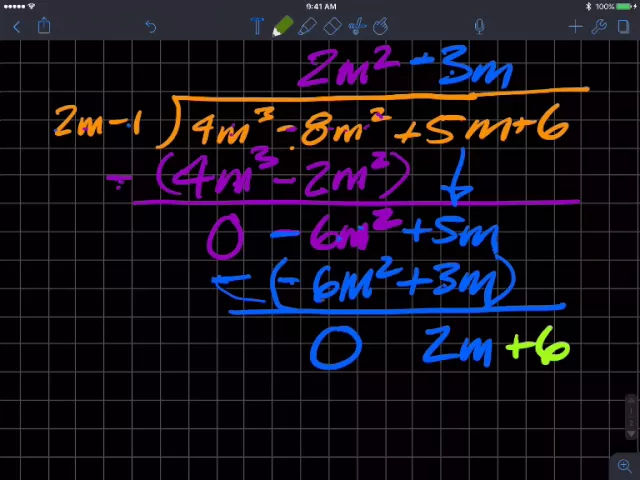 9:41 AM
100%
T
2m² - 3m
2m - 1 ) 4m³ - 8m² + 5m + 6
- (4m³ - 2m²)
0 - 6m² + 5m
- (- 6m² + 3m)
0 2m + 6